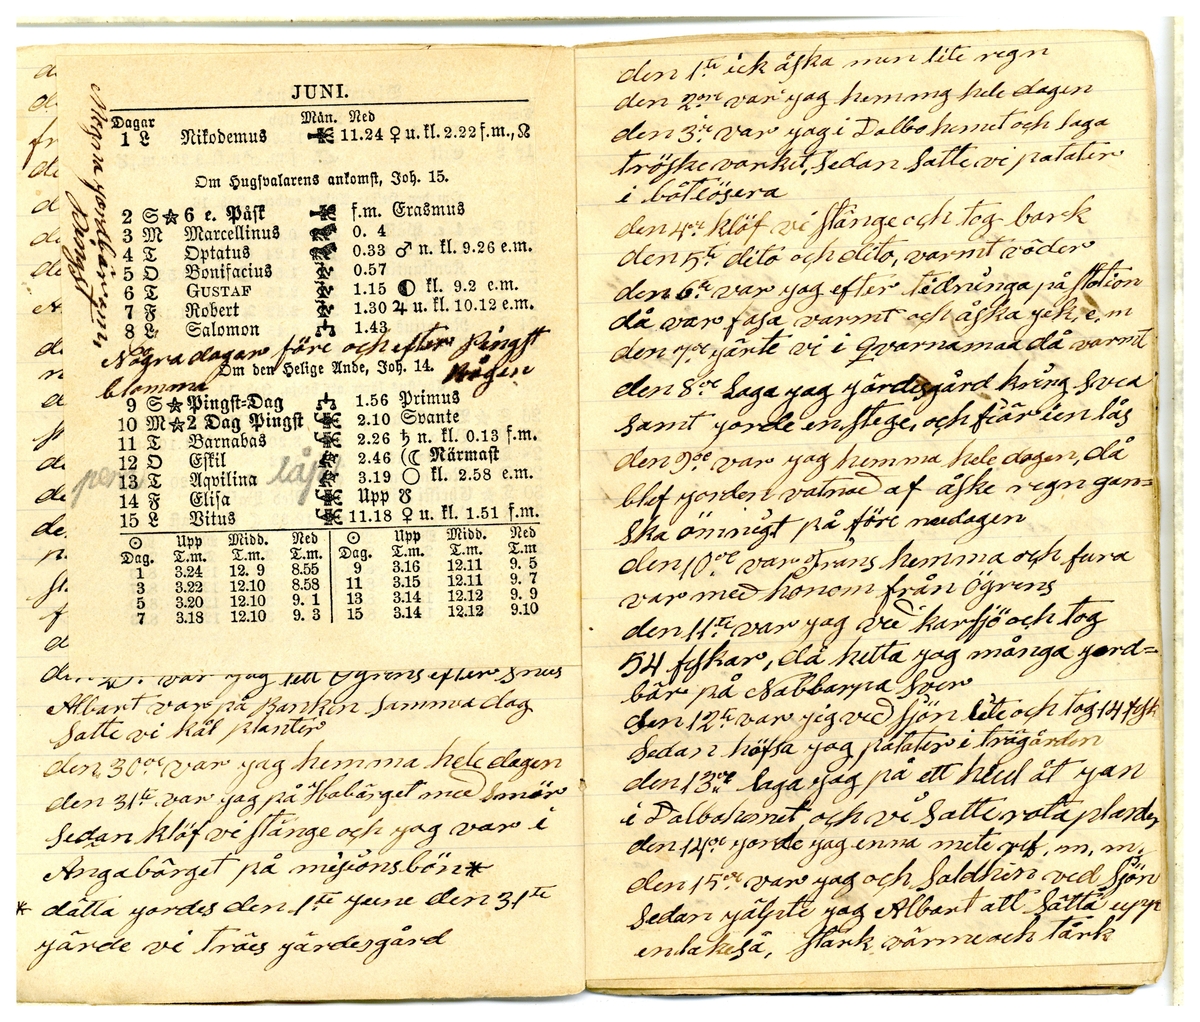 JUNI.
Dagar Mån. Ned
1 L Nikodemus 11.24 ♀ u. kl. 2.22 f.m., ☊
Om Hugsvalarens ankomst, Joh. 15.
2 S ☆ 6 e. Påsk f.m. Erasmus
3 M Marcellinus 0. 4
4 T Optatus 0.33 ♂ n. kl. 9.26 e.m.
5 O Bonifacius 0.57
6 T GUSTAF 1.15 ◐ kl. 9.2 e.m.
7 F Robert 1.30 ♃ u. kl. 10.12 e.m.
8 L Salomon 1.43
Några dagar före och efter Pingst
Om den Helige Ande, Joh. 14.
blomma Rågen
9 S ☆ Pingst-Dag 1.56 Primus
10 M ☆ 2 Dag Pingst 2.10 Svante
11 T Barnabas 2.26 ♄ n. kl. 0.13 f.m.
12 O Eskil 2.46 (☾ Närmast
13 T Aqvilina 3.19 ○ kl. 2.58 e.m.
14 F Elisa Upp ☋
15 L Vitus 11.18 ♀ u. kl. 1.51 f.m.
☉ Upp Midd. Ned ☉ Upp Midd. Ned
Dag. T.m. T.m. T.m. Dag. T.m. T.m. T.m
1 3.24 12. 9 8.55 9 3.16 12.11 9. 5
3 3.22 12.10 8.58 11 3.15 12.11 9. 7
5 3.20 12.10 9. 1 13 3.14 12.12 9. 9
7 3.18 12.10 9. 3 15 3.14 12.12 9.10
Några jordbär
Pingst
var jag till Ögrens efter Snus
Albart var på Banken samma dag
Satte vi kål planter
den 30de var jag hemma hele dagen
den 31te var jag på Habärget med Smör
Sedan klöf vi stänge och jag var i
Angabärget på misionsbön*
* dätta jordes den 1te june den 31te
järde vi träes järdesgård
den 1te ick åska men lite regn
den 2dre var jag hemma hele dagen
den 3de var jag i Dalbohemet och laga
tröske varket, Sedan Satte vi patater
i båtlösera
den 4de klöf vi stänge och tog bark
den 5te dito och dito, varmt väder
den 6te var jag efter tidninga på station
då var fasa varmt och åska jek e, m
den 7de järte vi i Qvarnamaa då varmt
den 8de Laga jag järdesgård kring Svea
Samt jorde en stege, och fjär ien lås
den 9de var jag hemma hele dagen, då
blef jorden vatnad af åske regn gan=
ska ömnigt på före medagen
den 10de var Frans hemma och fura
var med honom från Ögrens
den 11te var jag ved karsjö och tog
54 fiskar, då hetta jag många jord=
bär på Nabbarpa Sver
den 12te var jig ved sjön lite och tog 14 fisk
Sedan höfsa jag patater i trägården
den 13de laga jag på ett hiul åt Jan
i Dalbohemet och vi Satte rota planter
den 14de jorde jag enna mete ref, m, m,
den 15de var jag och Soldhin ved Sjön
Sedan jälpte jag Albart att Sätta upp
stark värme och tårk